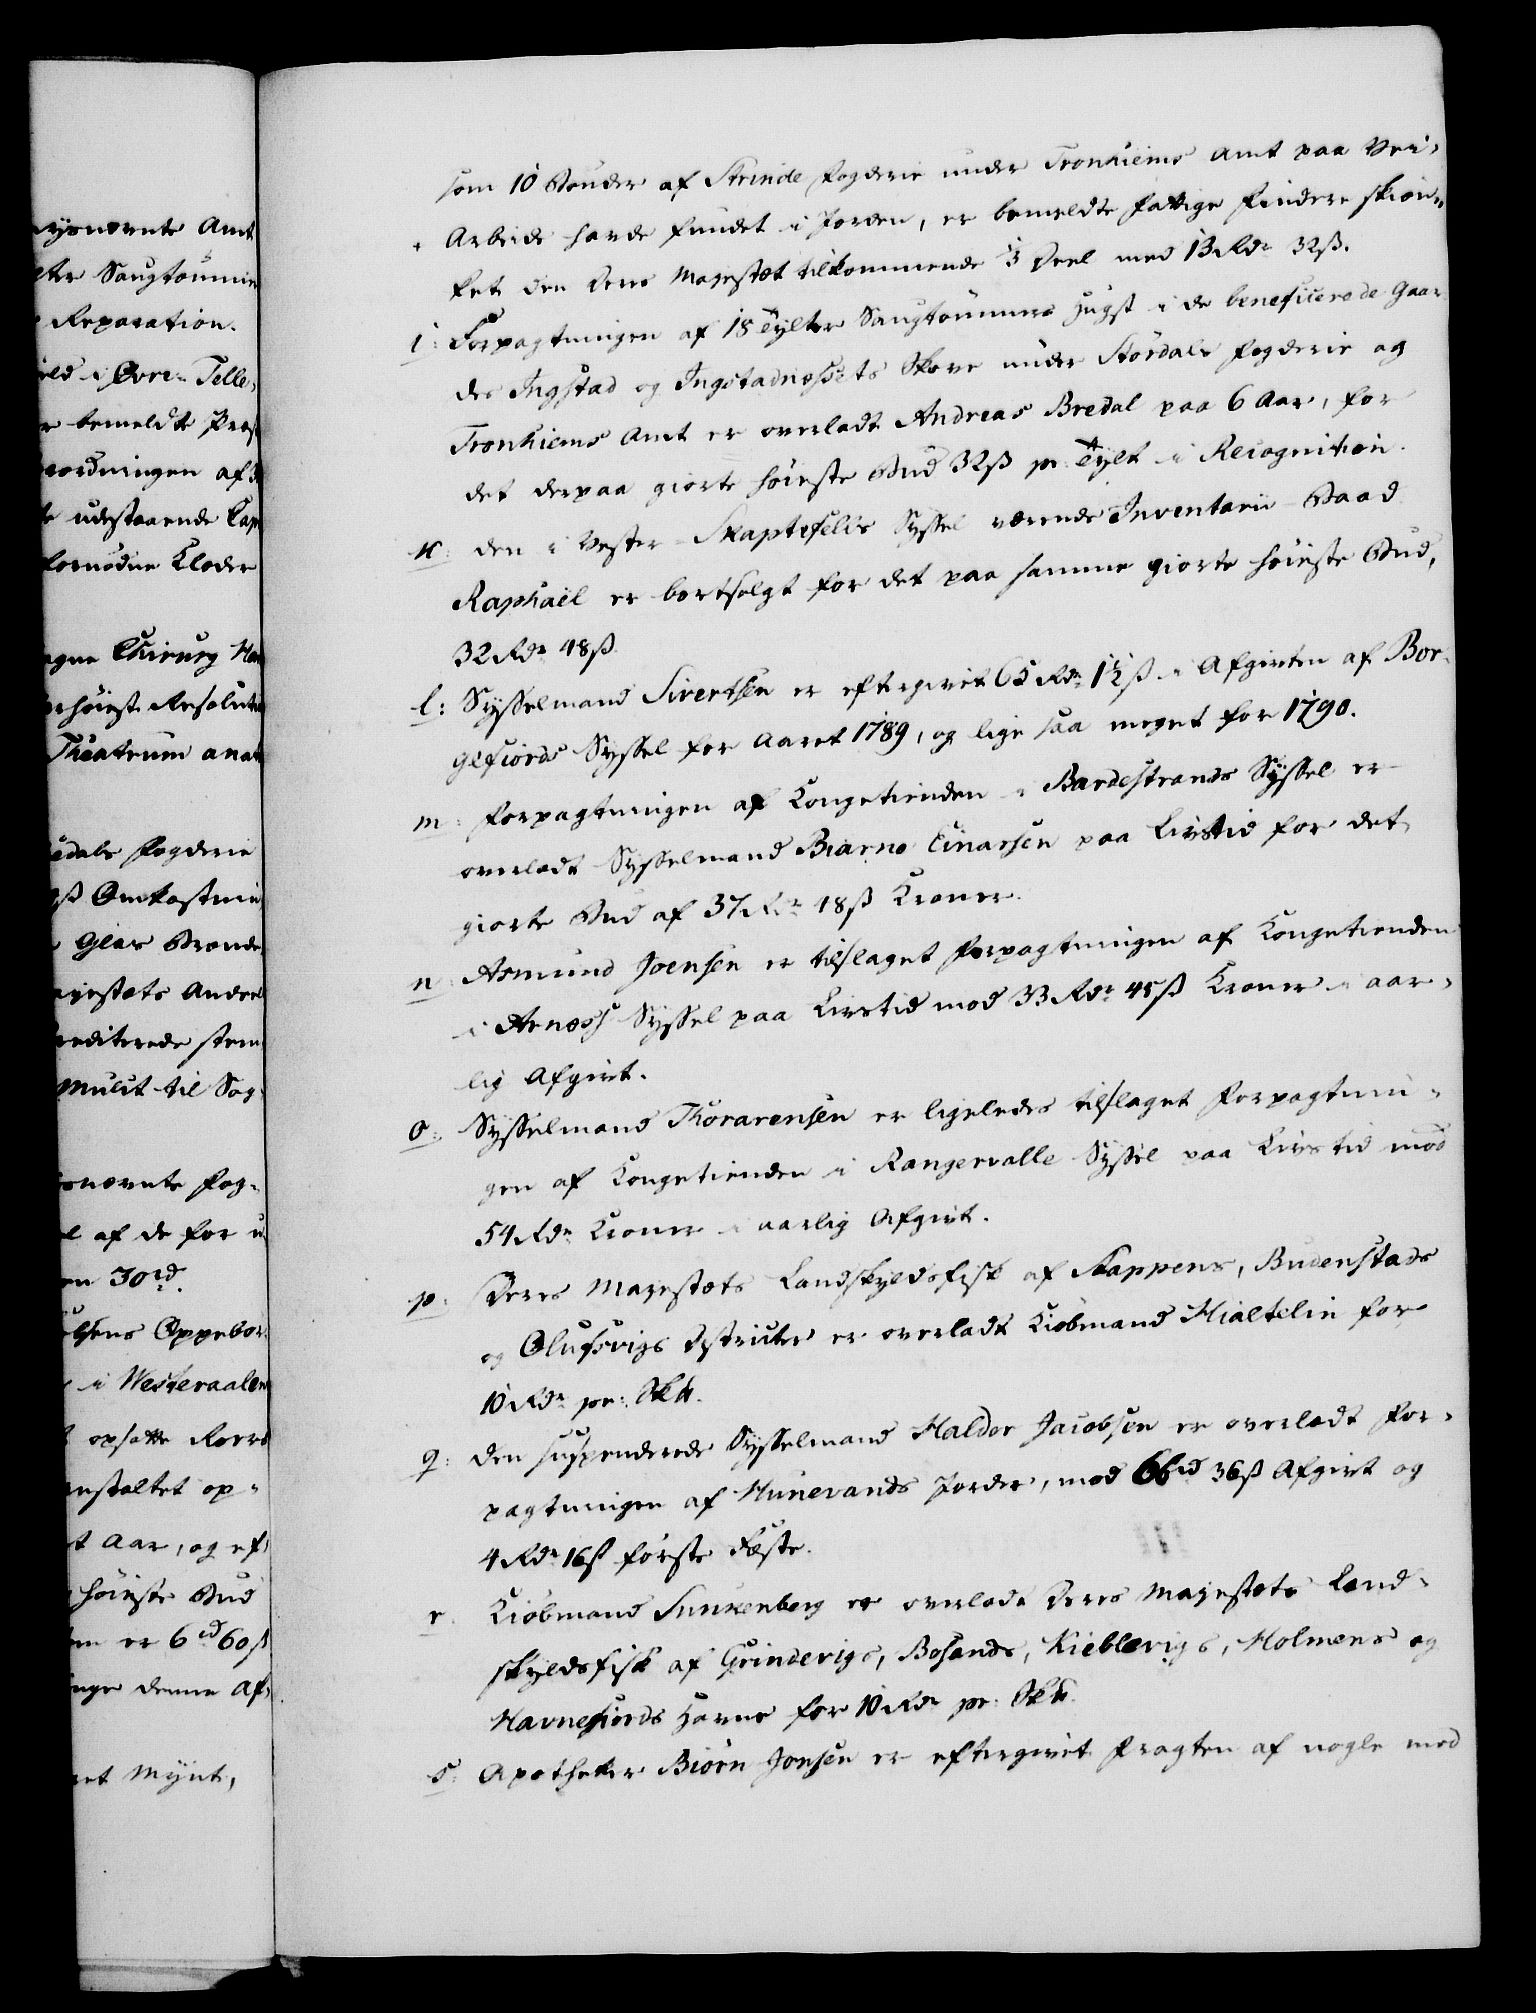 som 10 Bønder af Strinde Fogderie under Tronhiems Amt paa Vei-
Arbeide havde fundet i Jorden, er bemeldte fattige Findere skiæn-
ket den Deres Majestæt tilkommende ⅓ Deel med 13 Rdr 32 ß.
i: Forpagtningen af 18 Tylter Saugtømmers Hugst i de beneficerede Gaar-
des Ingstad og Ingstadnæssets Skove under Stordals Fogderie og
Tronhiems Amt er overladt Andreas Bredal paa 6 Aar, for
det derpaa giorte høieste Bud 32 ß pr Tylt i Recognition.
k: den i Vester-Skaptefells Syssel værende Inventarii-Baad
Raphaël er bortsolgt for det paa samme giorte høieste Bud,
32 Rdr 48 ß.
l: Sysselmand Sivertsen er eftergivet 65 Rdr 1½ ß i Afgivten af Bor-
gefiords Syssel for Aaret 1789, og lige saa meget for 1790.
m: Forpagtningen af Kongetienden i Bardestrands Syssel er
overladt Sysselmand Biarne Einarsen paa Livstid for det
giorte Bud af 37 Rdr 48 ß Kroner.
n: Asmund Joensen er tilslaget Forpagtningen af Kongetienden
i Arness Syssel paa Livstid mod 33 Rdr 45 ß Kroner i aar-
lig Afgivt.
o: Sysselmand Thorarensen er ligeledes tilslaget Forpagtnin-
gen af Kongetienden i Rangervalle Syssel paa Livstid mod
54 Rdr Kroner i aarlig Afgivt.
p: Deres Majestæts Landskyldsfisk af Stappens, Budenstads
og Olufsvigs Districter er overladt Kiøbmand Hialtelin for
10 Rdr pr: Sk℔.
q: den suspenderede Sysselmand Haldor Jacobsen er overladt For-
pagtningen af Hunevands Jorder, mod 66 rd 36 ß Afgivt og
4 Rdr 16 ß første Fæste.
r: Kiøbmand Sunkenberg er overladt Deres Majestæts Land-
skyldsfisk af Grindevigs, Bosands, Kieblevigs, Holmens og
Havnefiords Havne for 10 Rdr pr: Sk℔.
s: Apotheker Biørn Jonsen er eftergivet Fragten af nogle med